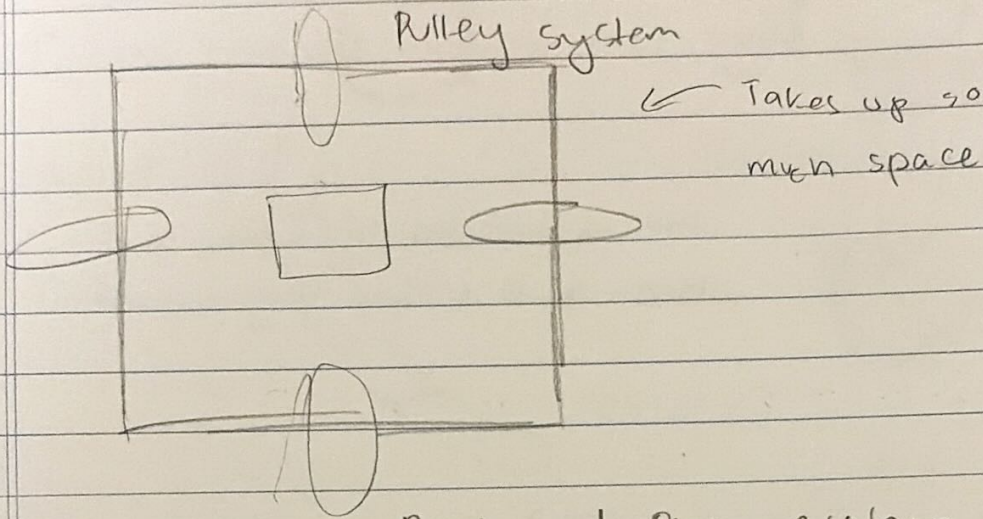 Pulley system
Takes up so
much space